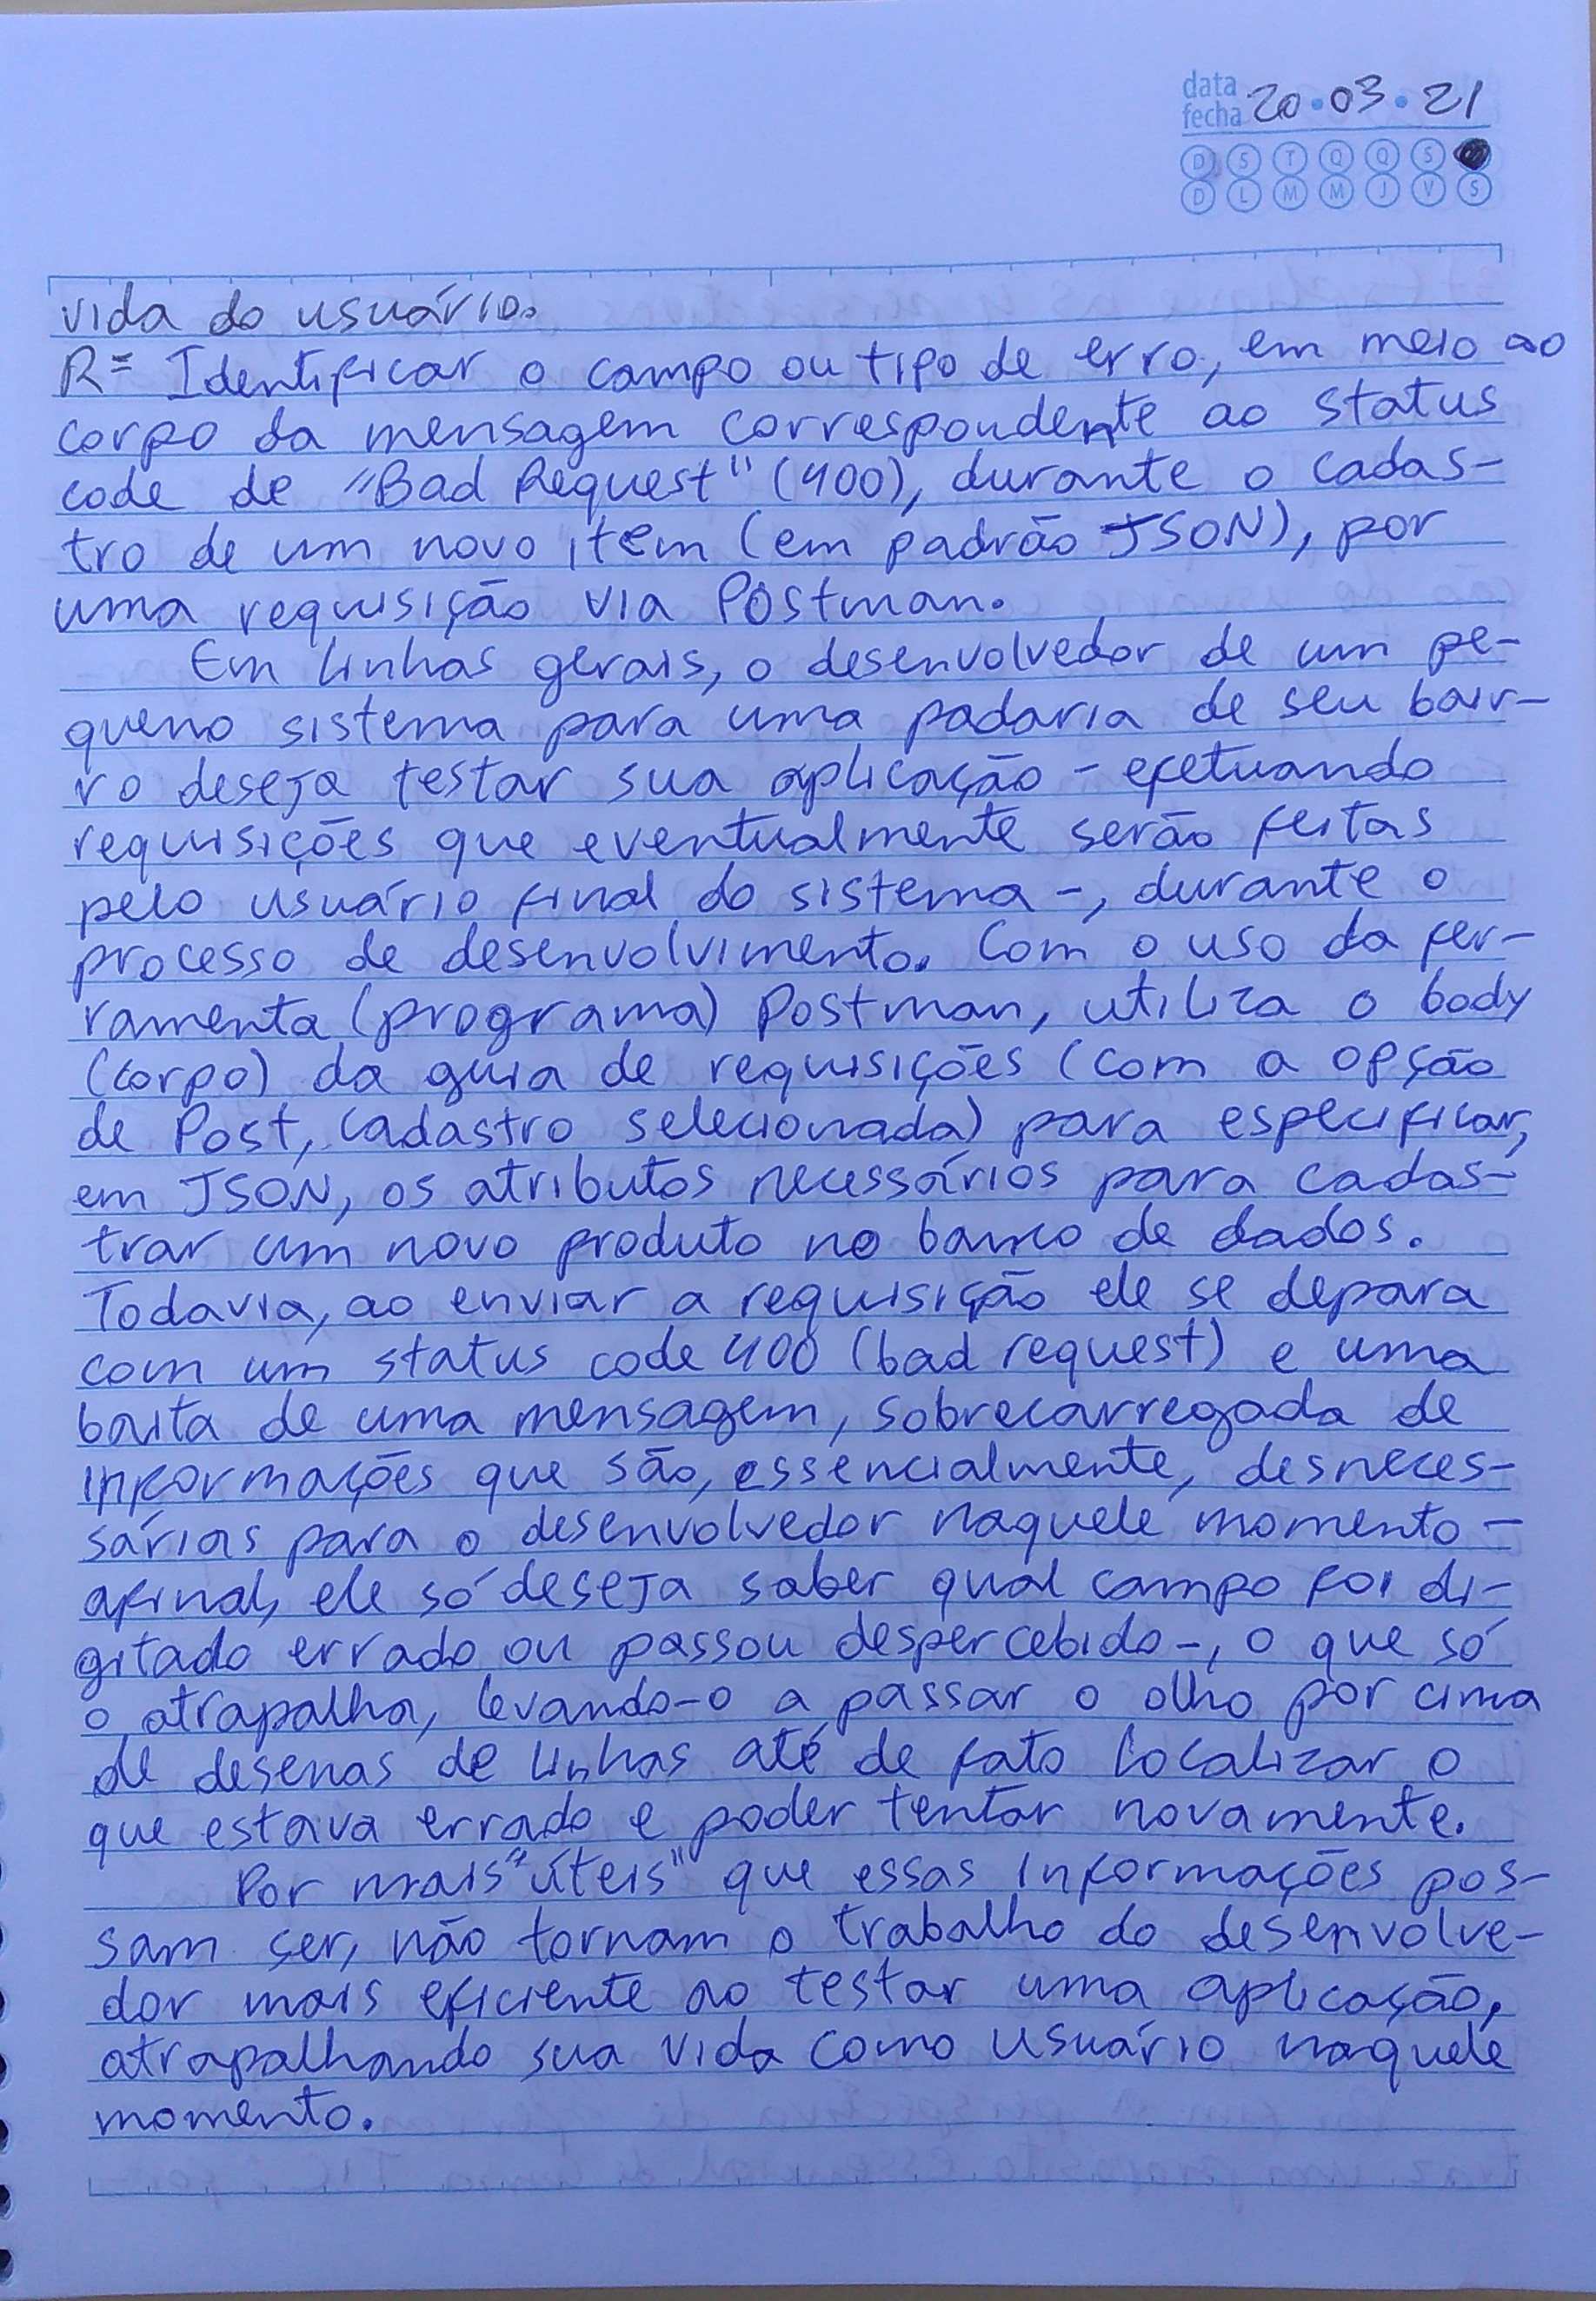 data
fecha 20 • 03 • 21
D S T Q Q S
D L M M J V S
vida do usuário.
R= Identificar o campo ou tipo de erro, em meio ao
corpo da mensagem correspondente ao status
code de "Bad Request" (400), durante o cadas-
tro de um novo item (em padrão JSON), por
uma requisição via Postman.
Em linhas gerais, o desenvolvedor de um pe-
queno sistema para uma padaria de seu bair-
ro deseja testar sua aplicação - efetuando
requisições que eventualmente serão feitas
pelo usuário final do sistema -, durante o
processo de desenvolvimento. Com o uso da fer-
ramenta (programa) Postman, utiliza o body
(corpo) da guia de requisições (com a opção
de Post, cadastro selecionada) para especificar,
em JSON, os atributos necessários para cadas-
trar um novo produto no banco de dados.
Todavia, ao enviar a requisição ele se depara
com um status code 400 (bad request) e uma
baita de uma mensagem, sobrecarregada de
informações que são, essencialmente, desneces-
sárias para o desenvolvedor naquele momento -
afinal, ele só deseja saber qual campo foi di-
gitado errado ou passou despercebido -, o que só
o atrapalha, levando-o a passar o olho por cima
de desenas de linhas até de fato localizar o
que estava errado e poder tentar novamente.
Por mais "úteis" que essas informações pos-
sam ser, não tornam o trabalho do desenvolve-
dor mais eficiente ao testar uma aplicação,
atrapalhando sua vida como usuário naquele
momento.